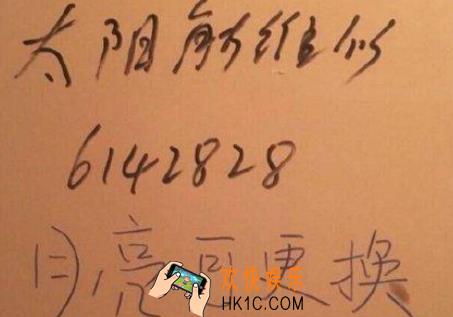 太阳能维修
6142828
月亮可更换
欢快娱乐
HK1C.COM